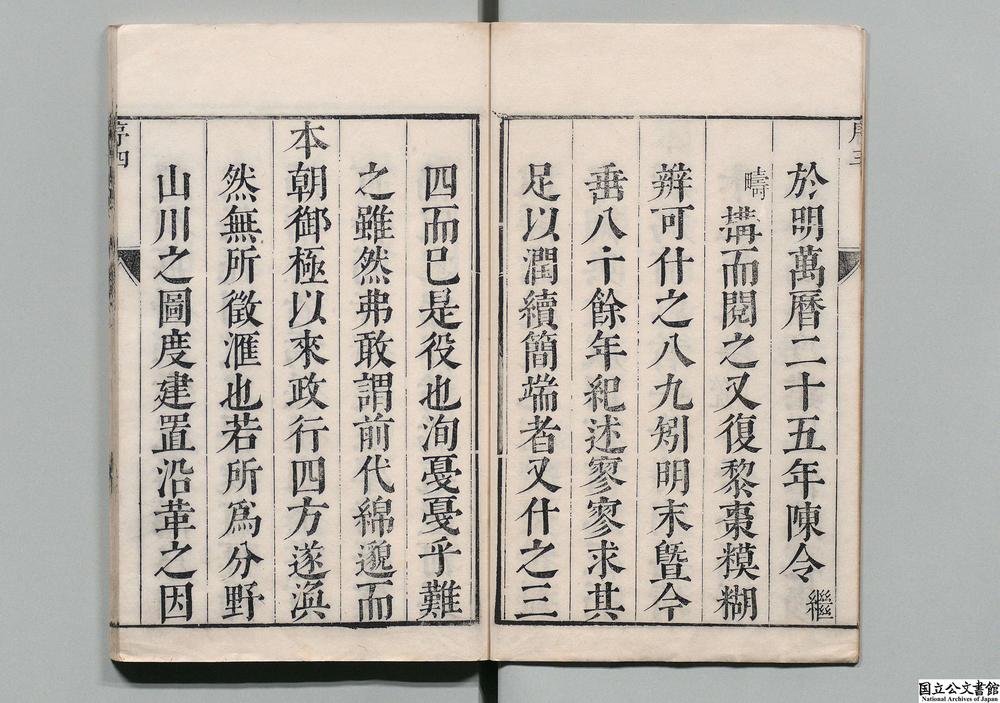 序三
於明萬曆二十五年陳令繼
疇搆而閱之又復黎棗糢糊
辨可什之八九矧明末曁今
垂八十餘年紀述寥寥求其
足以潤續簡端者又什之三
四而已是役也洵憂憂乎難
之雖然弗敢謂前代綿邈而
本朝御極以來政行四方遂渙
然無所徵滙也若所爲分野
山川之圖度建置沿革之因
序四
国立公文書館
National Archives of Japan